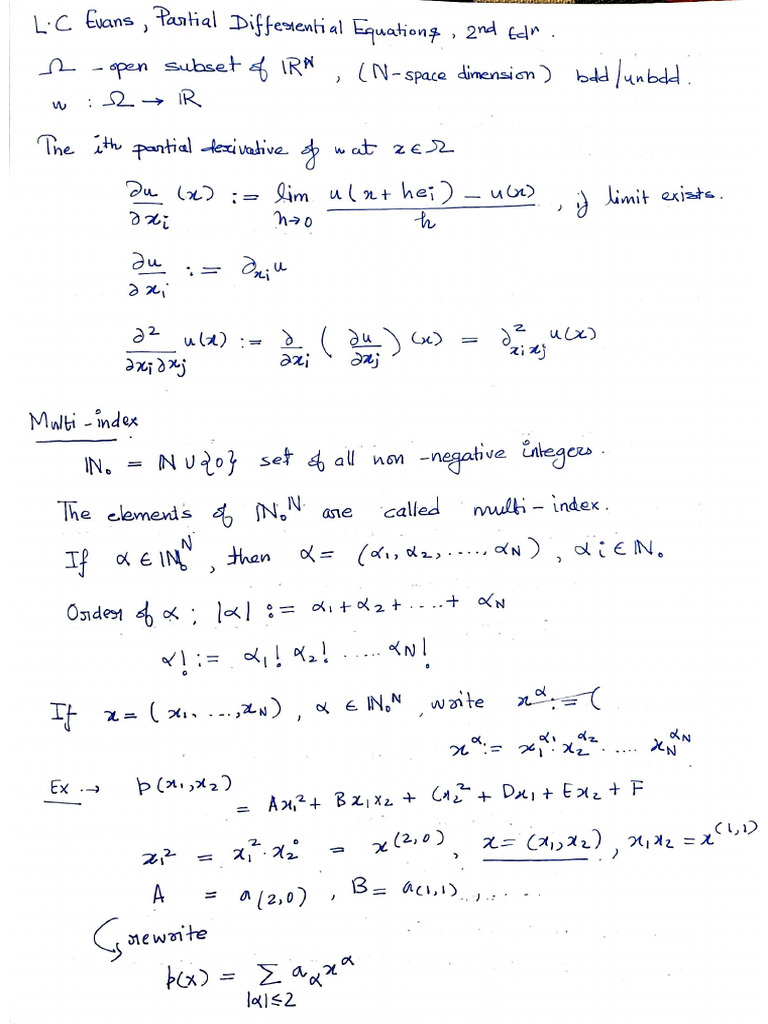 L.C Evans, Partial Differential Equations, 2nd Edn.
Ω - open subset of ℝᴺ, (N-space dimension) bdd/unbdd.
u : Ω → ℝ
The ith partial derivative of u at x ∈ Ω
∂u/∂xᵢ (x) := lim_{h→0} (u(x + heᵢ) - u(x))/h, if limit exists.
∂u/∂xᵢ := ∂_{xᵢ} u
∂²/∂xᵢ∂xⱼ u(x) := ∂/∂xᵢ (∂u/∂xⱼ)(x) = ∂²_{xᵢxⱼ} u(x)
Multi-index
ℕ₀ = ℕ ∪ {0} set of all non-negative integers.
The elements of ℕ₀ᴺ are called multi-index.
If α ∈ ℕ₀ᴺ, then α = (α₁, α₂, ....., α_N), αi ∈ ℕ₀
Order of α; |α| := α₁ + α₂ + .... + α_N
α! := α₁! α₂! ..... α_N!
If x = (x₁, ..., x_N), α ∈ ℕ₀ᴺ, write x^α := (
x^α := x₁^{α₁} . x₂^{α₂} . .... x_N^{α_N}
Ex → p(x₁, x₂)
= Ax₁² + Bx₁x₂ + Cx₂² + Dx₁ + Ex₂ + F
x₁² = x₁² . x₂⁰ = x^{(2,0)}, x = (x₁, x₂), x₁x₂ = x^{(1,1)}
A = a_{(2,0)}, B = a_{(1,1)}, ......
↪ rewrite
p(x) = Σ_{|α|≤2} a_α x^α